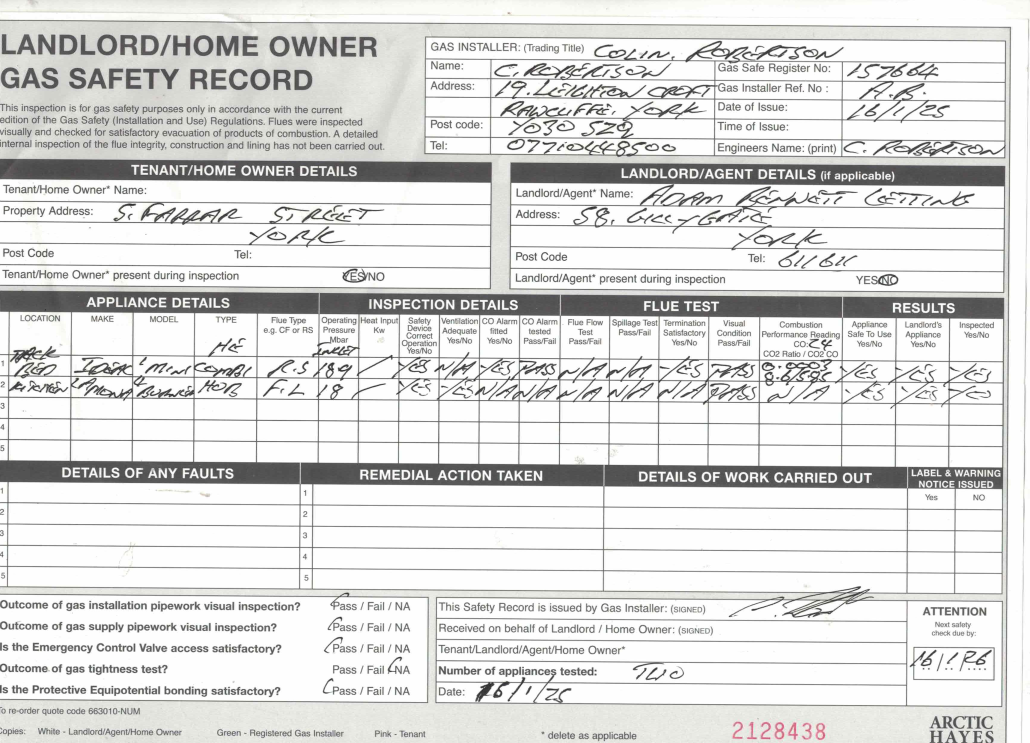 LANDLORD/HOME OWNER
GAS SAFETY RECORD
This inspection is for gas safety purposes only in accordance with the current
edition of the Gas Safety (Installation and Use) Regulations. Flues were inspected
visually and checked for satisfactory evacuation of products of combustion. A detailed
internal inspection of the flue integrity, construction and lining has not been carried out.
GAS INSTALLER: (Trading Title) COLIN. ROBERTSON
Name: C. ROBERTSON Gas Safe Register No: 157664
Address: 19. LEIGHTON CROFT Gas Installer Ref. No : A.R.
RAWCLIFFE. YORK Date of Issue: 16/1/25
Post code: YO30 5ZQ Time of Issue:
Tel: 07710448500 Engineers Name: (print) C. ROBERTSON
TENANT/HOME OWNER DETAILS
Tenant/Home Owner* Name:
Property Address: 5. FARRAR STREET
YORK
Post Code Tel:
Tenant/Home Owner* present during inspection YES/NO
LANDLORD/AGENT DETAILS (if applicable)
Landlord/Agent* Name: ADAM BENNETT LETTING
Address: 58. GILLYGATE
YORK
Post Code Tel: 611611
Landlord/Agent* present during inspection YES/NO
APPLIANCE DETAILS INSPECTION DETAILS FLUE TEST RESULTS
LOCATION MAKE MODEL TYPE Flue Type e.g. CF or RS Operating Pressure Mbar Heat Input Kw Safety Device Correct Operation Yes/No Ventilation Adequate Yes/No CO Alarm fitted Yes/No CO Alarm tested Pass/Fail Flue Flow Test Pass/Fail Spillage Test Pass/Fail Termination Satisfactory Yes/No Visual Condition Pass/Fail Combustion Performance Reading CO: 24 CO2 Ratio / CO2 CO Appliance Safe To Use Yes/No Landlord's Appliance Yes/No Inspected Yes/No
HE INLET
1 BACK BED IDEAL MINI COMBI R.S 189 / YES N/A YES PASS N/A N/A YES PASS 0.0003 YES YES YES
2 KITCHEN BURNER HOB F.L 18 / YES YES N/A N/A N/A N/A N/A PASS N/A YES YES YES
3
4
5
DETAILS OF ANY FAULTS REMEDIAL ACTION TAKEN DETAILS OF WORK CARRIED OUT LABEL & WARNING NOTICE ISSUED
Yes NO
1 1
2 2
3 3
4 4
5 5
Outcome of gas installation pipework visual inspection? Pass / Fail / NA
Outcome of gas supply pipework visual inspection? Pass / Fail / NA
Is the Emergency Control Valve access satisfactory? Pass / Fail / NA
Outcome of gas tightness test? Pass / Fail / NA
Is the Protective Equipotential bonding satisfactory? Pass / Fail / NA
This Safety Record is issued by Gas Installer: (SIGNED)
Received on behalf of Landlord / Home Owner: (SIGNED)
Tenant/Landlord/Agent/Home Owner*
Number of appliances tested: TWO
Date: 16/1/25
ATTENTION
Next safety
check due by:
16/1/26
To re-order quote code 663010-NUM
Copies: White - Landlord/Agent/Home Owner Green - Registered Gas Installer Pink - Tenant * delete as applicable 2128438
ARCTIC
HAYES